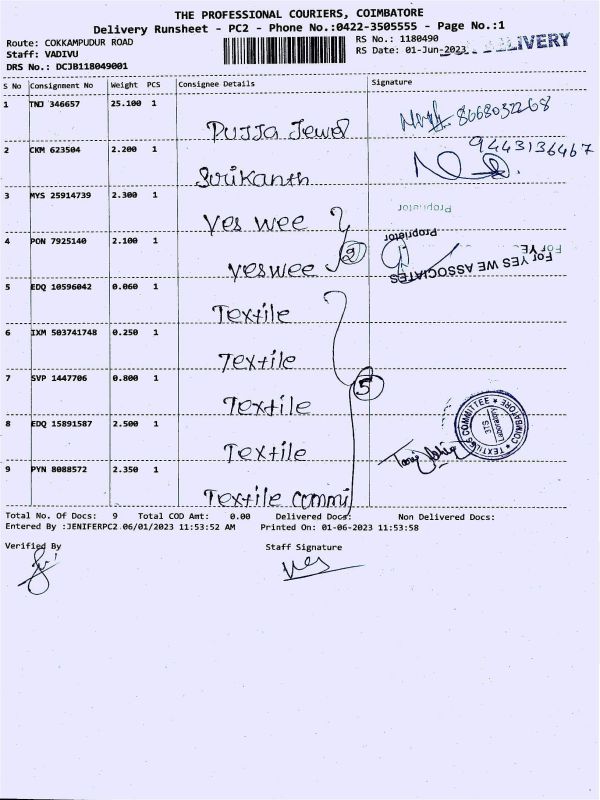 THE PROFESSIONAL COURIERS, COIMBATORE
Delivery Runsheet - PC2 - Phone No.:0422-3505555 - Page No.:1
Route: COKKAMPUDUR ROAD
RS No.: 1180490
Staff: VADIVU
RS Date: 01-Jun-2023
DELIVERY
DRS No.: DCJB118049001
S No Consignment No Weight PCS Consignee Details Signature
1 TNJ 346657 25.100 1
8668032268
Pujja Jewel
2 CKM 623504 2.200 1
9443136467
Srikanth
3 MYS 25914739 2.300 1
Proprietor
Yes wee
Proprietor
4 PON 7925140 2.100 1
2
For YE
For YES WE ASSOCIATES
yeswee
5 EDQ 10596042 0.060 1
Textile
6 IXM 503741748 0.250 1
Textile
7 SVP 1447706 0.800 1
5
Textile
8 EDQ 15891587 2.500 1
TEXTILES COMMITTEE * COIMBATORE *
3TS
Laboratory
Textile
9 PYN 8088572 2.350 1
Textile commi
Total No. Of Docs: 9 Total COD Amt: 0.00 Delivered Docs: Non Delivered Docs:
Entered By :JENIFERPC2 06/01/2023 11:53:52 AM Printed On: 01-06-2023 11:53:58
Verified By Staff Signature